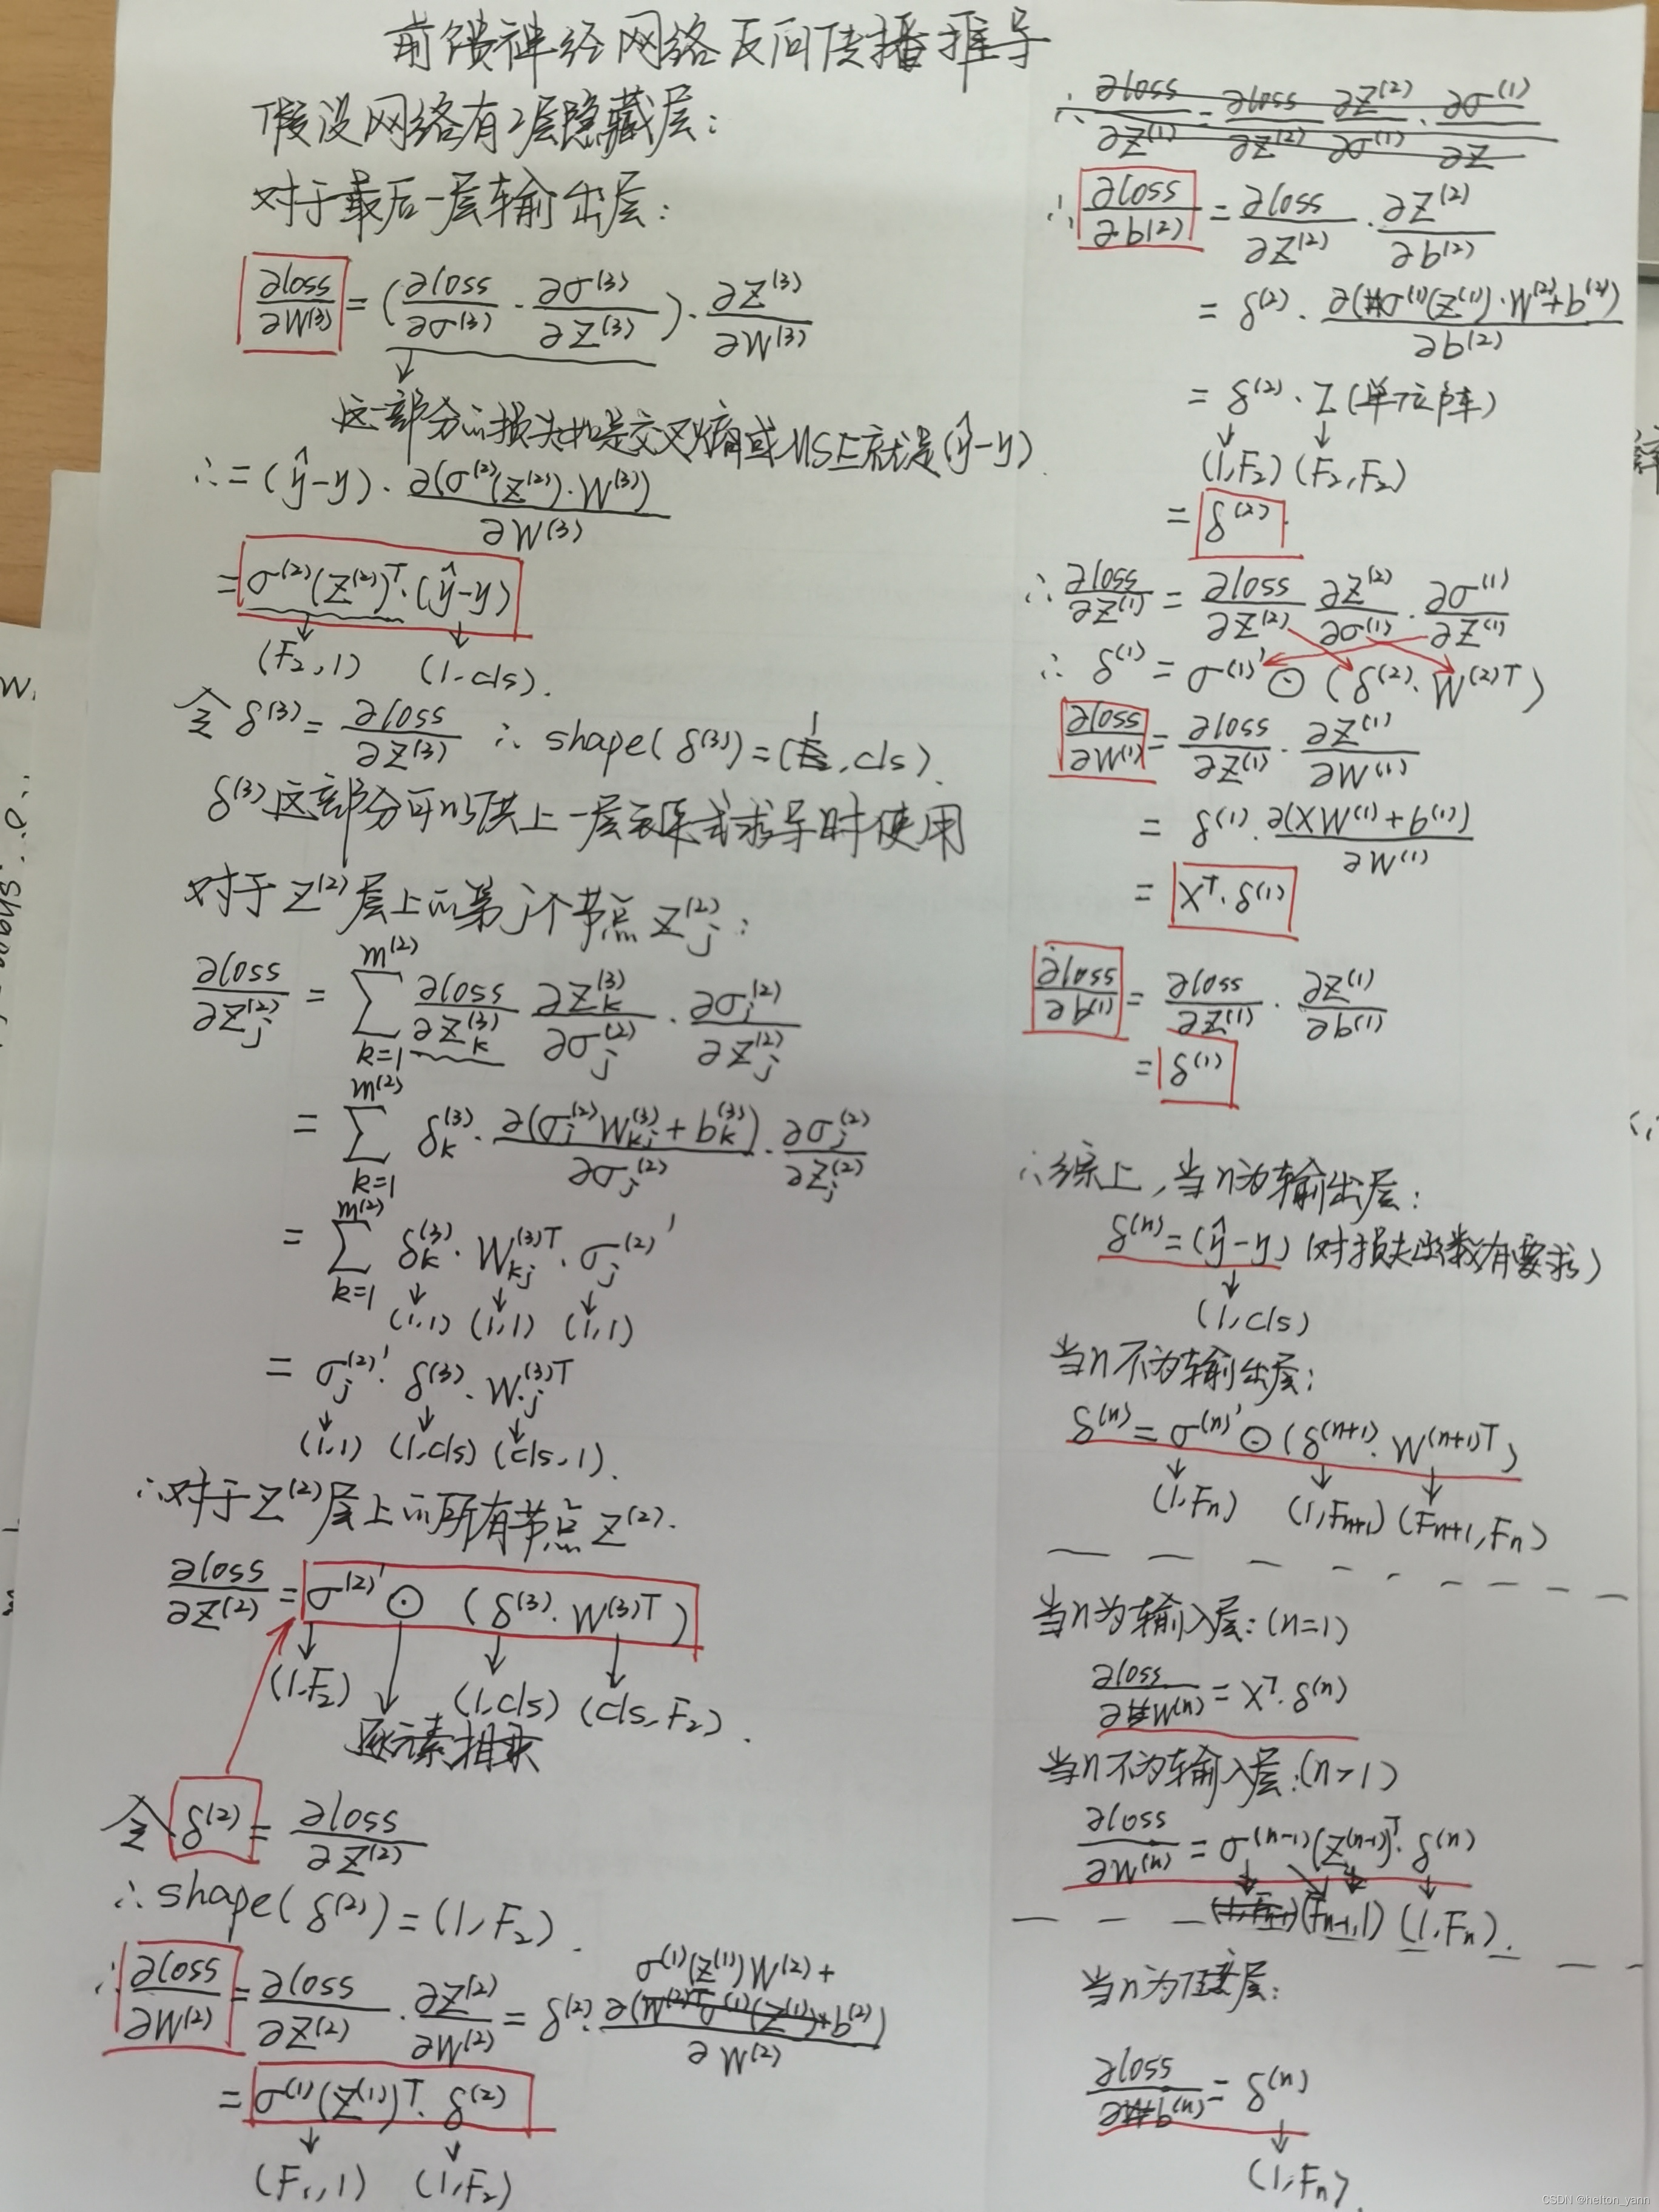 前馈神经网络反向传播推导
假设网络有2层隐藏层:
对于最后一层输出层:
∂loss/∂W⁽³⁾ = (∂loss/∂σ⁽³⁾ · ∂σ⁽³⁾/∂Z⁽³⁾) · ∂Z⁽³⁾/∂W⁽³⁾
这一部分的损失如是交叉熵或MSE就是(ŷ-y)
∴ = (ŷ-y) · ∂(σ⁽²⁾(Z⁽²⁾)·W⁽³⁾)/∂W⁽³⁾
= σ⁽²⁾(Z⁽²⁾)ᵀ·(ŷ-y)
(F₂,1) (1,cls).
令 δ⁽³⁾ = ∂loss/∂Z⁽³⁾ ∴ shape(δ⁽³⁾) = (1,cls).
δ⁽³⁾这部分可以供上一层表达式求导时使用
对于Z⁽²⁾层上的第j个节点Zⱼ⁽²⁾:
∂loss/∂Zⱼ⁽²⁾ = Σ(k=1, m⁽²⁾) ∂loss/∂Zₖ⁽³⁾ ∂Zₖ⁽³⁾/∂σⱼ⁽²⁾ · ∂σⱼ⁽²⁾/∂Zⱼ⁽²⁾
= Σ(k=1, m⁽²⁾) δₖ⁽³⁾ · ∂(σⱼ⁽²⁾Wₖⱼ⁽³⁾+bₖ⁽³⁾)/∂σⱼ⁽²⁾ · ∂σⱼ⁽²⁾/∂Zⱼ⁽²⁾
= Σ(k=1, m⁽²⁾) δₖ⁽³⁾ · Wₖⱼ⁽³⁾ᵀ · σⱼ⁽²⁾′
(1,1) (1,1) (1,1)
= σⱼ⁽²⁾′ · δ⁽³⁾ · W.ⱼ⁽³⁾ᵀ
(1,1) (1,cls) (cls,1).
∴对于Z⁽²⁾层上的所有节点Z⁽²⁾.
∂loss/∂Z⁽²⁾ = σ⁽²⁾′ ⊙ (δ⁽³⁾·W⁽³⁾ᵀ)
(1,F₂) (1,cls) (cls,F₂).
逐元素相乘
令 δ⁽²⁾ = ∂loss/∂Z⁽²⁾
∴shape(δ⁽²⁾) = (1,F₂).
∴ ∂loss/∂W⁽²⁾ = ∂loss/∂Z⁽²⁾ · ∂Z⁽²⁾/∂W⁽²⁾ = δ⁽²⁾ · ∂(σ⁽¹⁾(Z⁽¹⁾)W⁽²⁾+b⁽²⁾)/∂W⁽²⁾
= σ⁽¹⁾(Z⁽¹⁾)ᵀ · δ⁽²⁾
(F₁,1) (1,F₂)
∴ ∂loss/∂Z⁽¹⁾ = ∂loss/∂Z⁽²⁾ ∂Z⁽²⁾/∂σ⁽¹⁾ · ∂σ⁽¹⁾/∂Z
∴ ∂loss/∂b⁽²⁾ = ∂loss/∂Z⁽²⁾ · ∂Z⁽²⁾/∂b⁽²⁾
= δ⁽²⁾ · ∂(σ⁽¹⁾(Z⁽¹⁾)·W⁽²⁾+b⁽²⁾)/∂b⁽²⁾
= δ⁽²⁾ · I (单位阵)
(1,F₂) (F₂,F₂)
= δ⁽²⁾.
∴ ∂loss/∂Z⁽¹⁾ = ∂loss/∂Z⁽²⁾ ∂Z⁽²⁾/∂σ⁽¹⁾ · ∂σ⁽¹⁾/∂Z⁽¹⁾
∴ δ⁽¹⁾ = σ⁽¹⁾′ ⊙ (δ⁽²⁾·W⁽²⁾ᵀ)
∂loss/∂W⁽¹⁾ = ∂loss/∂Z⁽¹⁾ · ∂Z⁽¹⁾/∂W⁽¹⁾
= δ⁽¹⁾ · ∂(XW⁽¹⁾+b⁽¹⁾)/∂W⁽¹⁾
= Xᵀ·δ⁽¹⁾
∂loss/∂b⁽¹⁾ = ∂loss/∂Z⁽¹⁾ · ∂Z⁽¹⁾/∂b⁽¹⁾
= δ⁽¹⁾
∴综上,当n为输出层:
δ⁽ⁿ⁾ = (ŷ-y) (对损失函数有要求)
(1,cls)
当n不为输出层:
δ⁽ⁿ⁾ = σ⁽ⁿ⁾′ ⊙ (δ⁽ⁿ⁺¹⁾·W⁽ⁿ⁺¹⁾ᵀ)
(1,Fn) (1,Fn+1) (Fn+1,Fn)
当n为输入层:(n=1)
∂loss/∂W⁽ⁿ⁾ = Xᵀ·δ⁽ⁿ⁾
当n不为输入层:(n>1)
∂loss/∂W⁽ⁿ⁾ = σ⁽ⁿ⁻¹⁾(Z⁽ⁿ⁻¹⁾)ᵀ·δ⁽ⁿ⁾
(Fn-1,1) (1,Fn).
当n为任意层:
∂loss/∂b⁽ⁿ⁾ = δ⁽ⁿ⁾
(1,Fn).
CSDN @helton_yann